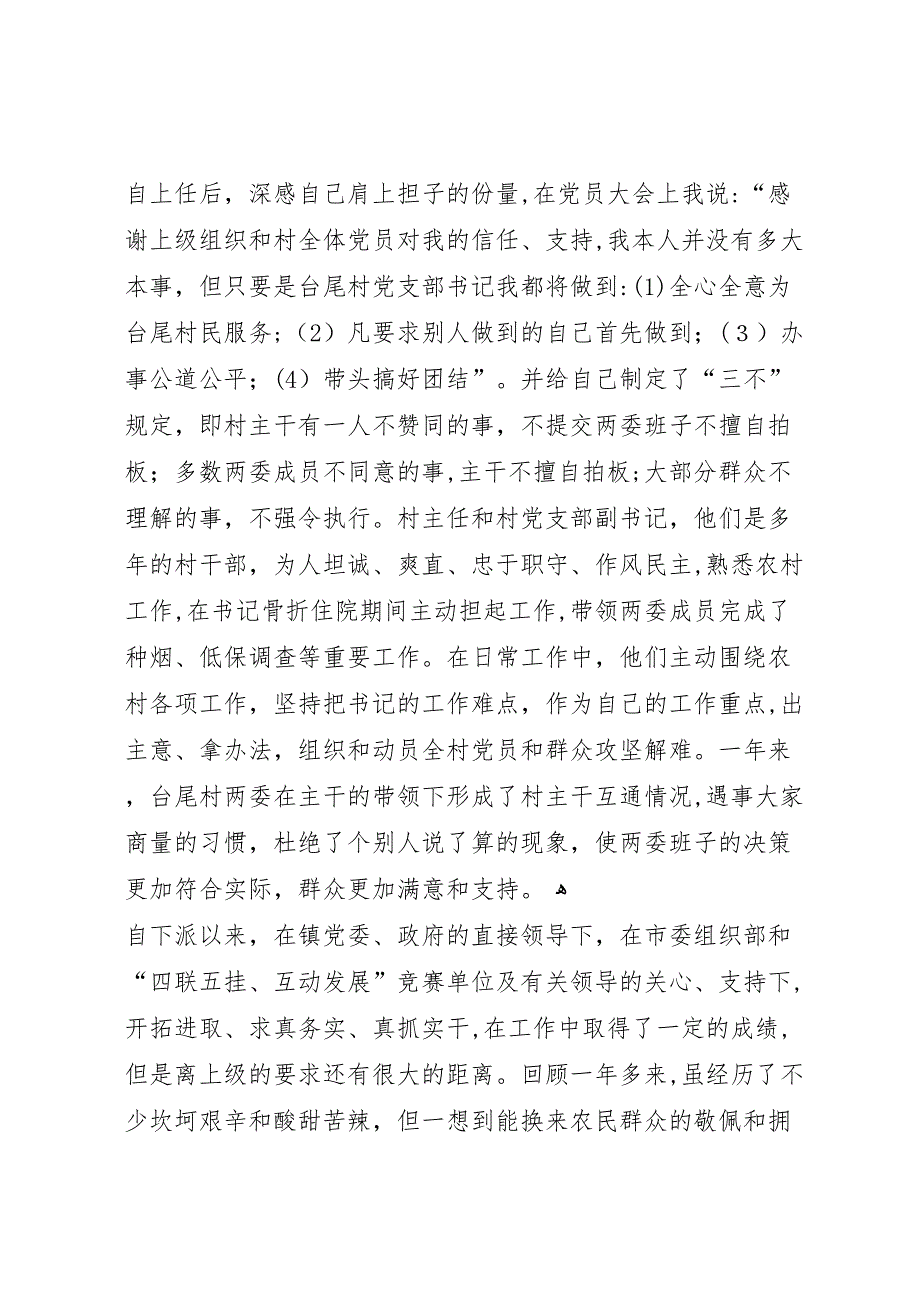 自上任后，深感自己肩上担子的份量,在党员大会上我说:“感
谢上级组织和村全体党员对我的信任、支持,我本人并没有多大
本事，但只要是台尾村党支部书记我都将做到:(1)全心全意为
台尾村民服务;（2）凡要求别人做到的自己首先做到；(３）办
事公道公平；(4）带头搞好团结”。并给自己制定了“三不”
规定，即村主干有一人不赞同的事，不提交两委班子不擅自拍
板；多数两委成员不同意的事,主干不擅自拍板;大部分群众不
理解的事，不强令执行。村主任和村党支部副书记，他们是多
年的村干部，为人坦诚、爽直、忠于职守、作风民主,熟悉农村
工作,在书记骨折住院期间主动担起工作,带领两委成员完成了
种烟、低保调查等重要工作。在日常工作中，他们主动围绕农
村各项工作，坚持把书记的工作难点，作为自己的工作重点,出
主意、拿办法，组织和动员全村党员和群众攻坚解难。一年来
，台尾村两委在主干的带领下形成了村主干互通情况,遇事大家
商量的习惯，杜绝了个别人说了算的现象，使两委班子的决策
更加符合实际，群众更加满意和支持。ﻫ
自下派以来，在镇党委、政府的直接领导下，在市委组织部和
“四联五挂、互动发展”竞赛单位及有关领导的关心、支持下,
开拓进取、求真务实、真抓实干,在工作中取得了一定的成绩,
但是离上级的要求还有很大的距离。回顾一年多来,虽经历了不
少坎坷艰辛和酸甜苦辣，但一想到能换来农民群众的敬佩和拥